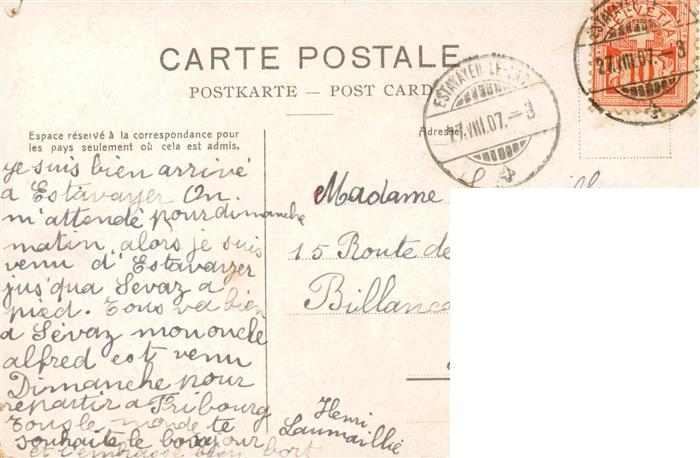 HELVETIA
10
ESTAVAYER-LE-LAC
27.VIII.07.-3
CARTE POSTALE
POSTKARTE — POST CARD
ESTAVAYER-LE-LAC
27.VIII.07.-3
Espace réservé à la correspondance pour
les pays seulement où cela est admis.
Adresse
je suis bien arrivé
a Estavayer On
m'attendé pour dimanche
matin, alors je suis
venu d'Estavayer
jus'qua Sévaz a
pied. Tous va bien
a Sévaz mon oncle
alfred est venu
Dimanche pour
repartir a Fribourg
Tous le monde te
souhaite le bonjour
et t'embrasse bien fort
Madame
15 Route de
Billanco
Henri
Laumaillié